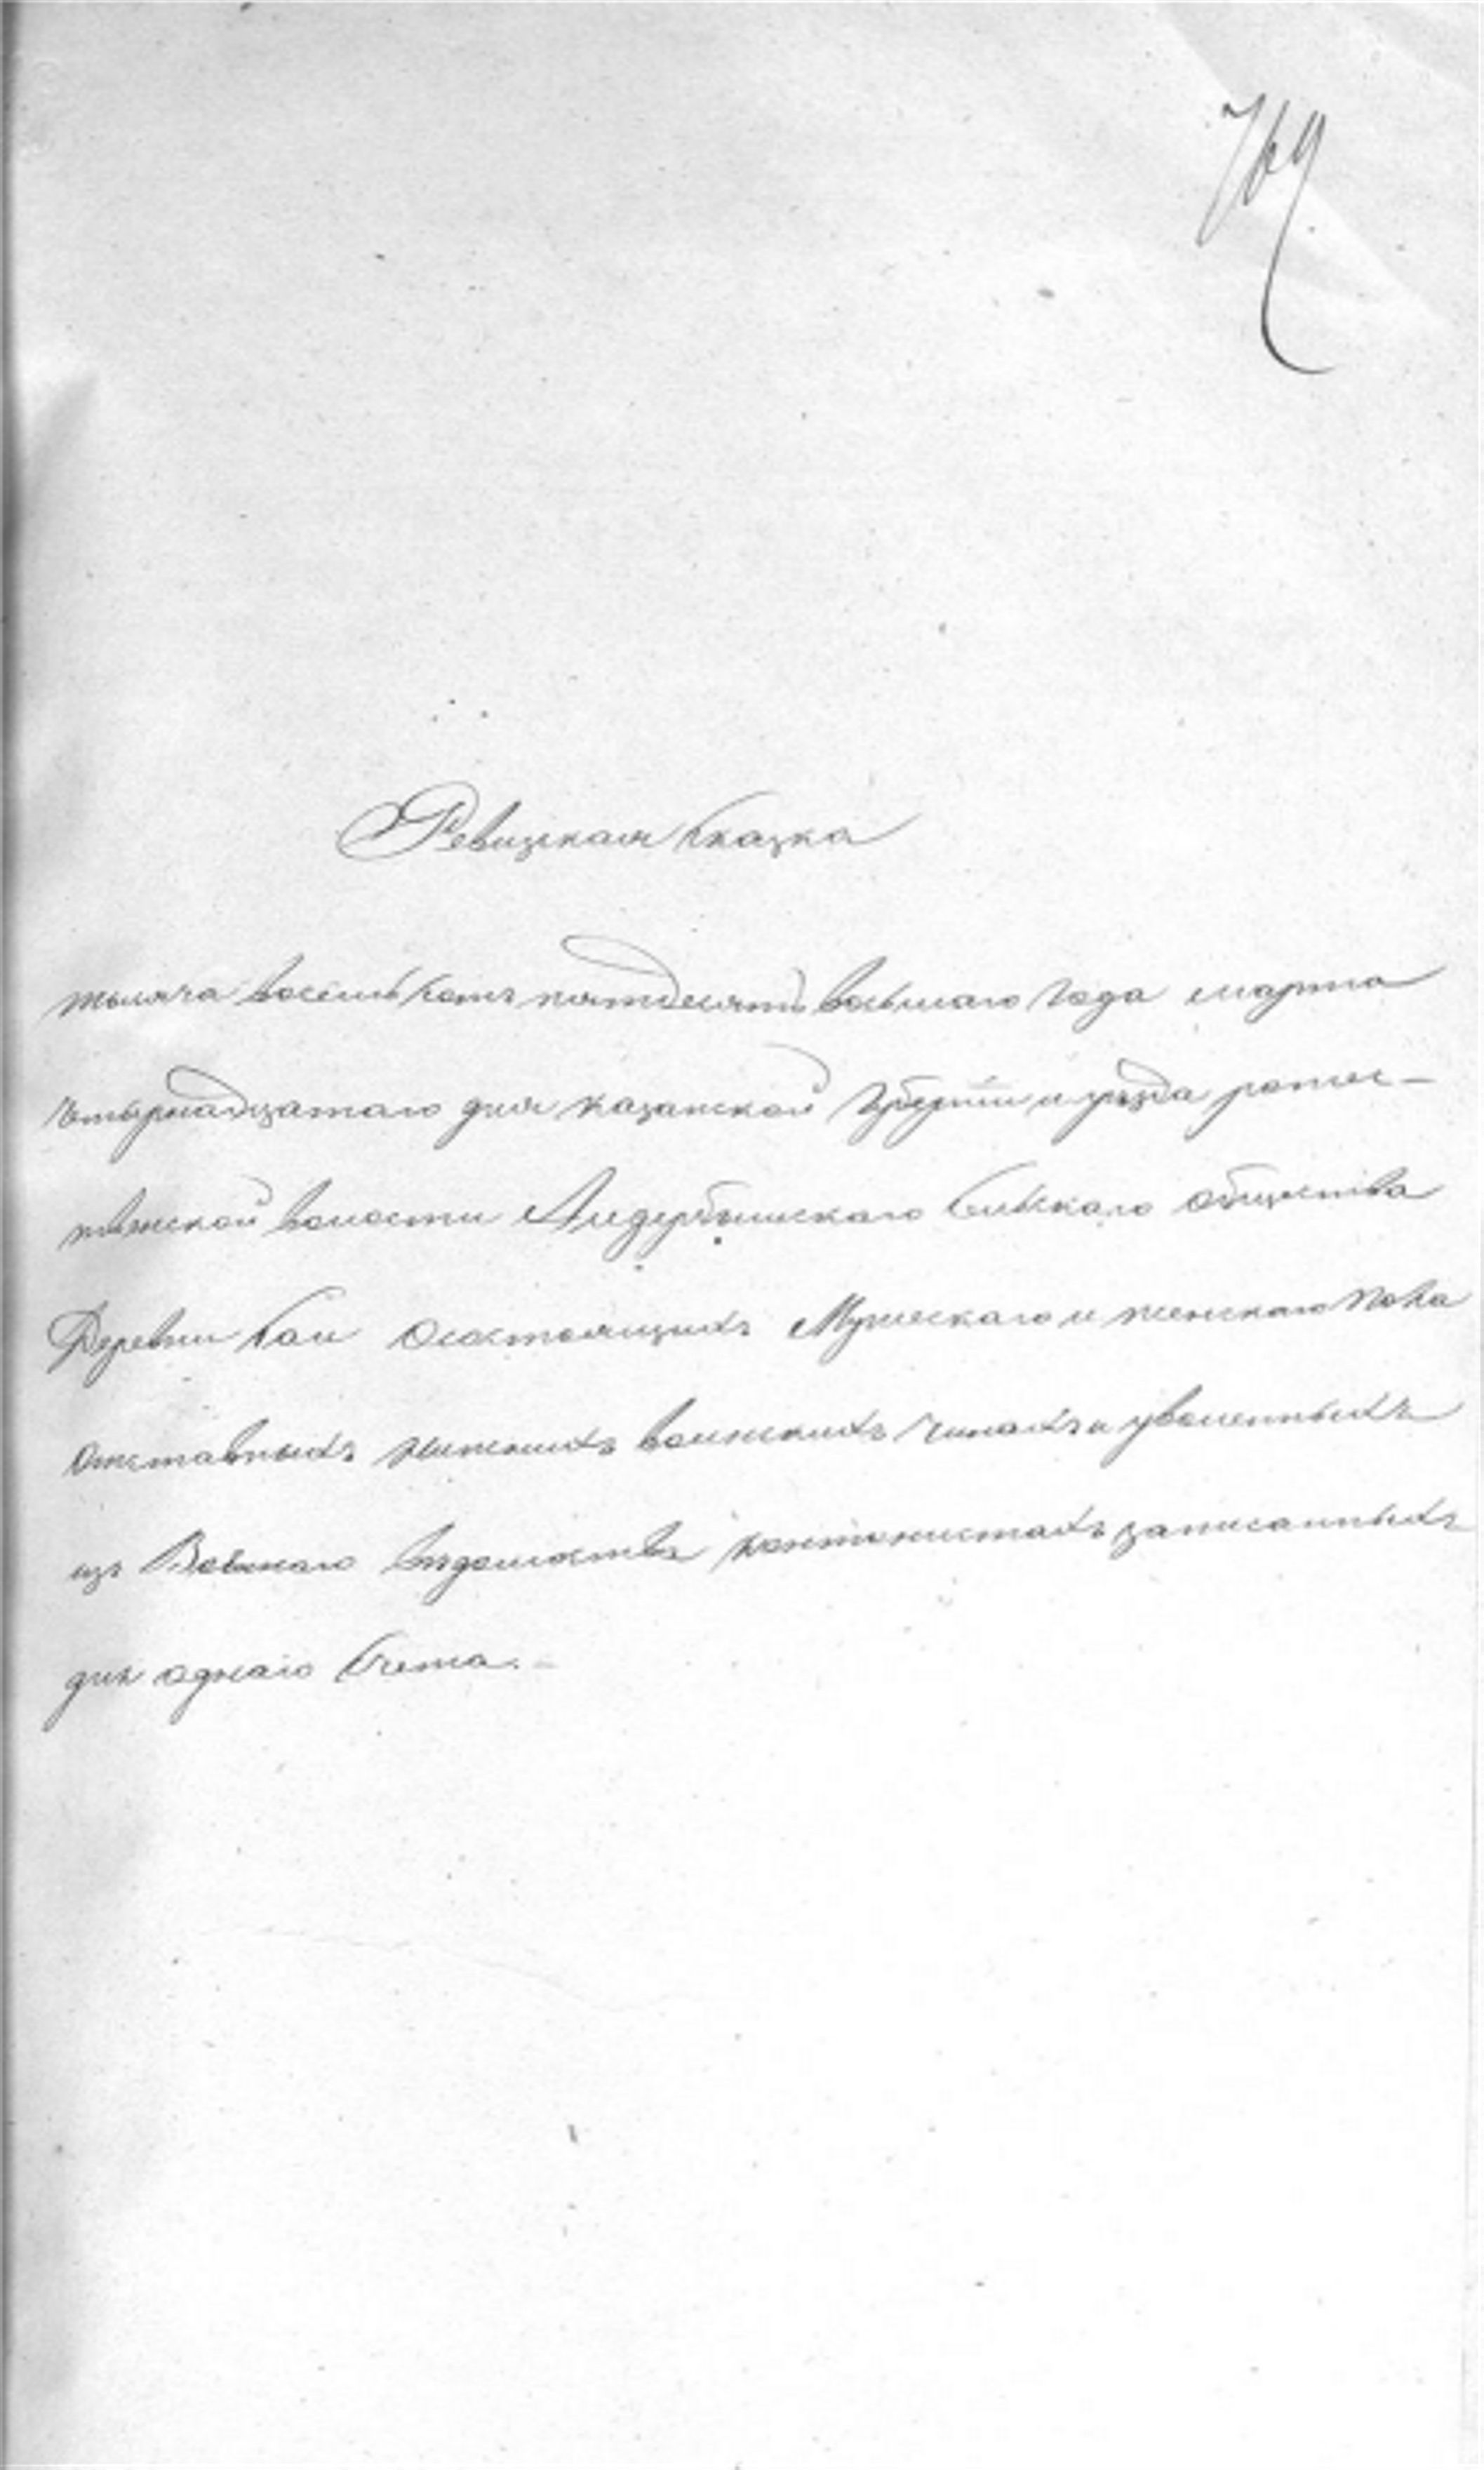 769
Ревизская сказка
тысяча восемьсотъ пятдесятъ восьмаго года марта
четырнадцатаго дня казанской губернiи и уѣзда
волости сельскаго общества
Деревни Саи о состоящихъ Мужескаго и женскаго пола
отставныхъ нижнихъ воинскихъ чинахъ и уволенныхъ
изъ Военнаго вѣдомства кантонистахъ записанныхъ
для однаго счета.